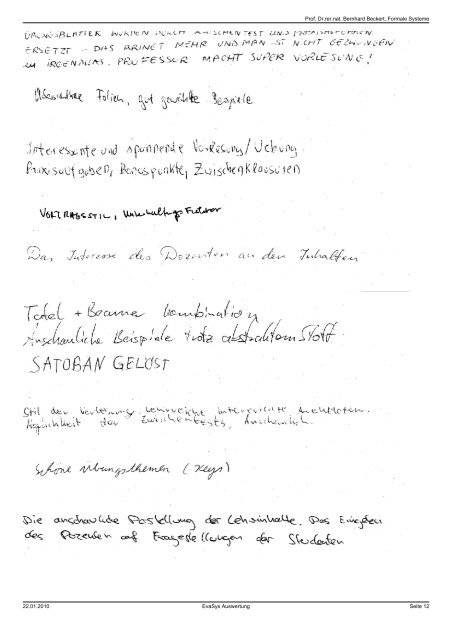 Prof. Dr.rer.nat. Bernhard Beckert, Formale Systeme
ÜBUNGSBLÄTTER WURDEN DURCH ZWISCHENTEST UND PRAXISAUFGABEN
ERSETZT – DAS BRINGT MEHR UND MAN IST NICHT GEZWUNGEN
ZU IRGENDWAS. PROFESSOR MACHT SUPER VORLESUNG!
Übersichtliche Folien, gut gewählte Beispiele
Interessante und spannende Vorlesung/Uebung
Praxisaufgaben, Bonuspunkte, Zwischenklausuren
VORTRAGSSTIL, Unterhaltungsfaktor
Das Interesse des Dozenten an den Inhalten
Tafel + Beamer Kombination
Anschauliche Beispiele trotz abstraktem Stoff
SATOBAN GELÖST
Stil der Vorlesung. Lehrreiche interessante
Möglichkeit der Zwischentests, Anschaulich.
Schöne Übungsthemen (Keys)
Die anschauliche Darstellung der Lehrinhalte. Das Eingehen
des Dozenten auf Fragestellungen der Studenten
22.01.2010
EvaSys Auswertung
Seite 12